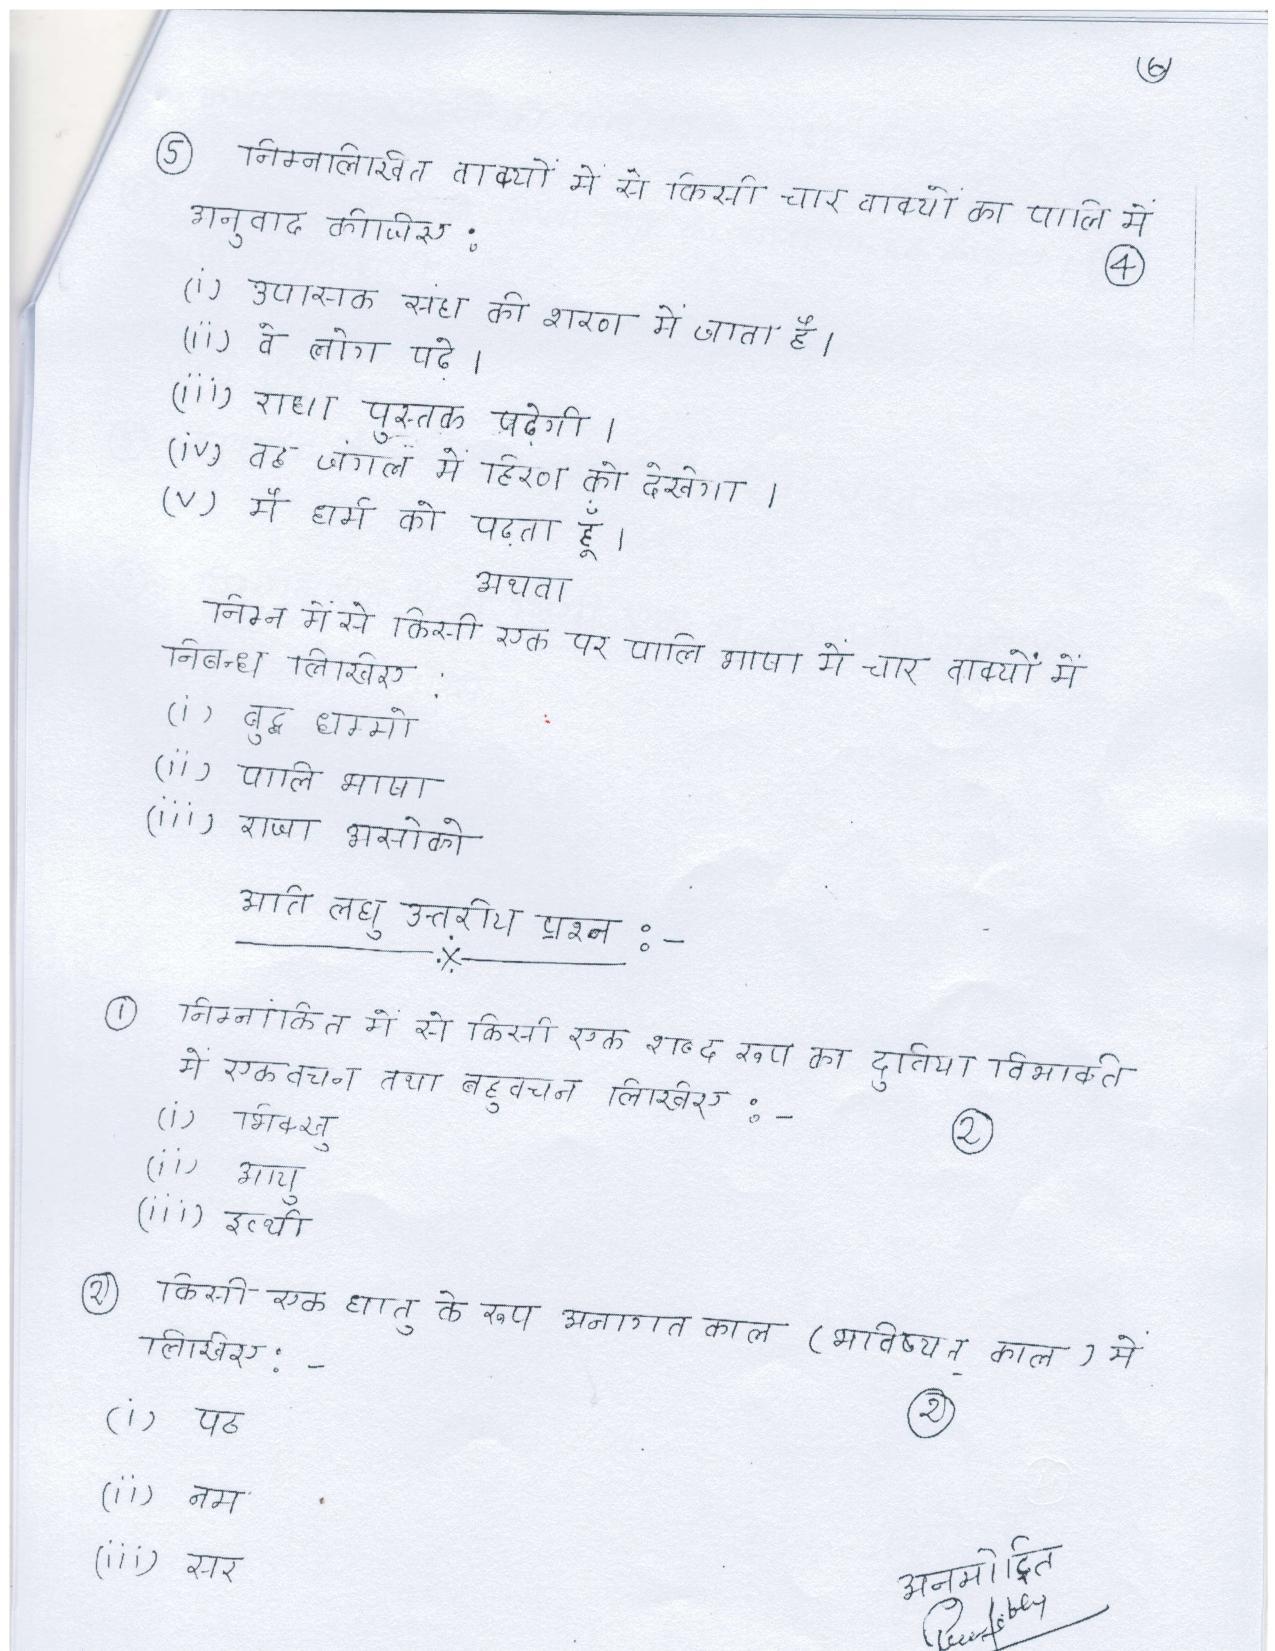 (6)
(5) निम्नलिखित वाक्यों में से किसी चार वाक्यों का पालि में
अनुवाद कीजिए :
(4)
(i) उपासक संघ की शरण में जाता है।
(ii) वे लोग पढ़े।
(iii) राधा पुस्तक पढ़ेगी।
(iv) वह जंगल में हिरण को देखेगा।
(v) मैं धर्म को पढ़ता हूँ।
अथवा
निम्न में से किसी एक पर पालि भाषा में चार वाक्यों में
निबन्ध लिखिए :
(i) बुद्ध धम्मो
(ii) पालि भाषा
(iii) राजा असोको
अति लघु उत्तरीय प्रश्न :-
(1) निम्नांकित में से किसी एक शब्द रूप का दुतिया विभक्ति
में एकवचन तथा बहुवचन लिखिए :-
(2)
(i) भिक्खु
(ii) आयु
(iii) इत्थी
(2) किसी एक धातु के रूप अनागत काल (भविष्यत् काल) में
लिखिए :-
(2)
(i) पठ
(ii) नम
(iii) सर
अनुमोदित